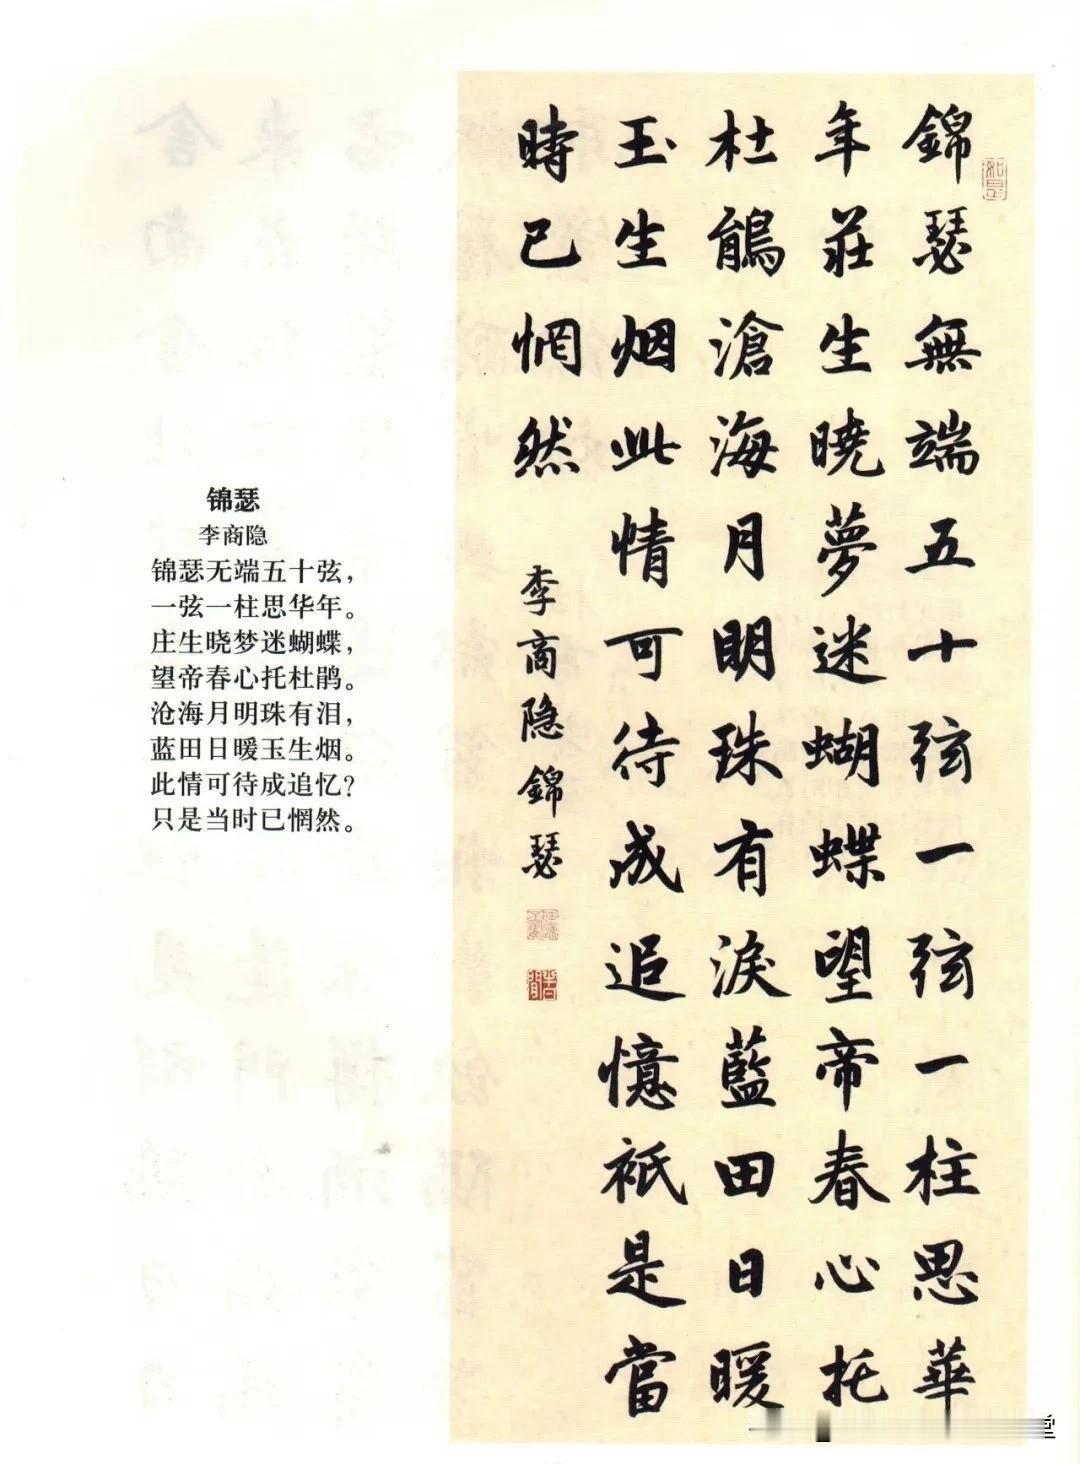 錦瑟無端五十弦一弦一柱思華
年莊生曉夢迷蝴蝶望帝春心托
杜鵑滄海月明珠有淚藍田日暖
玉生烟此情可待成追憶祇是當
時已惘然
李商隐錦瑟
锦瑟
李商隐
锦瑟无端五十弦，
一弦一柱思华年。
庄生晓梦迷蝴蝶，
望帝春心托杜鹃。
沧海月明珠有泪，
蓝田日暖玉生烟。
此情可待成追忆？
只是当时已惘然。